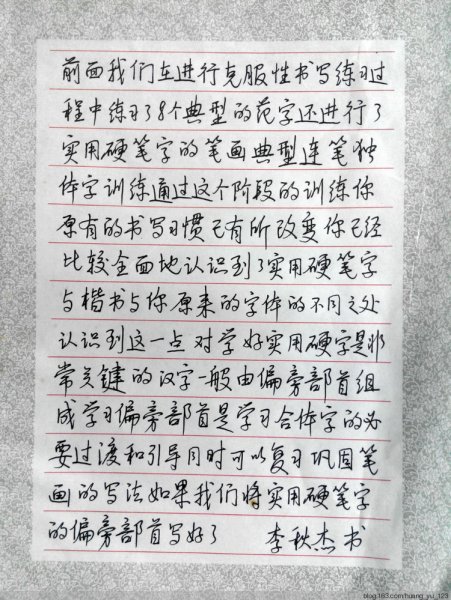 前面我们在进行克服性书写练习过
程中练习了8个典型的范字还进行了
实用硬笔字的笔画典型连笔独
体字训练通过这个阶段的训练你
原有的书写习惯已有所改变你已经
比较全面地认识到了实用硬笔字
与楷书与你原来的字体的不同之处
认识到这一点对学好实用硬字是非
常关键的汉字一般由偏旁部首组
成学习偏旁部首是学习合体字的必
要过渡和引导同时可以复习巩固笔
画的写法如果我们将实用硬笔字
的偏旁部首写好了 李秋杰书
blog.163.com/huang_yu_123